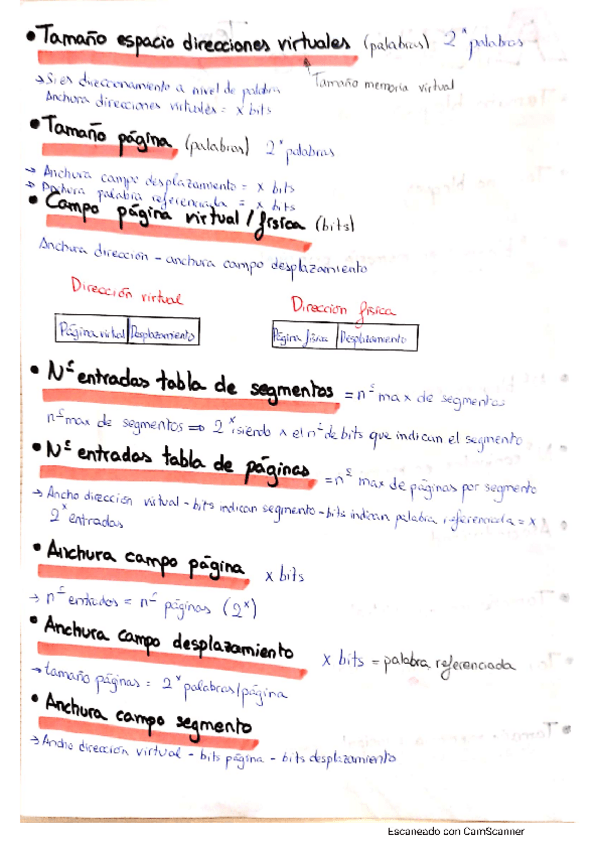 • Tamaño espacio direcciones virtuales (palabras) 2^x palabras
→ Si es direccionamiento a nivel de palabra
Tamaño memoria virtual
Anchura direcciones virtuales = x bits
• Tamaño página (palabras) 2^x palabras
→ Anchura campo desplazamiento = x bits
→ Anchura palabra referenciada = x bits
• Campo página virtual / física (bits)
Anchura dirección - anchura campo desplazamiento
Dirección virtual
Dirección física
Página virtual Desplazamiento
Página física Desplazamiento
• Nº entradas tabla de segmentos = nº max de segmentos
nº max de segmentos ⇒ 2^x siendo x el nº de bits que indican el segmento
• Nº entradas tabla de páginas = nº max de páginas por segmento
→ Ancho dirección virtual - bits indican segmento - bits indican palabra referenciada = x
2^x entradas
• Anchura campo página x bits
→ nº entradas = nº páginas (2^x)
• Anchura campo desplazamiento x bits = palabra referenciada
→ tamaño páginas = 2^x palabras/página
• Anchura campo segmento
→ Ancho dirección virtual - bits página - bits desplazamiento
Escaneado con CamScanner